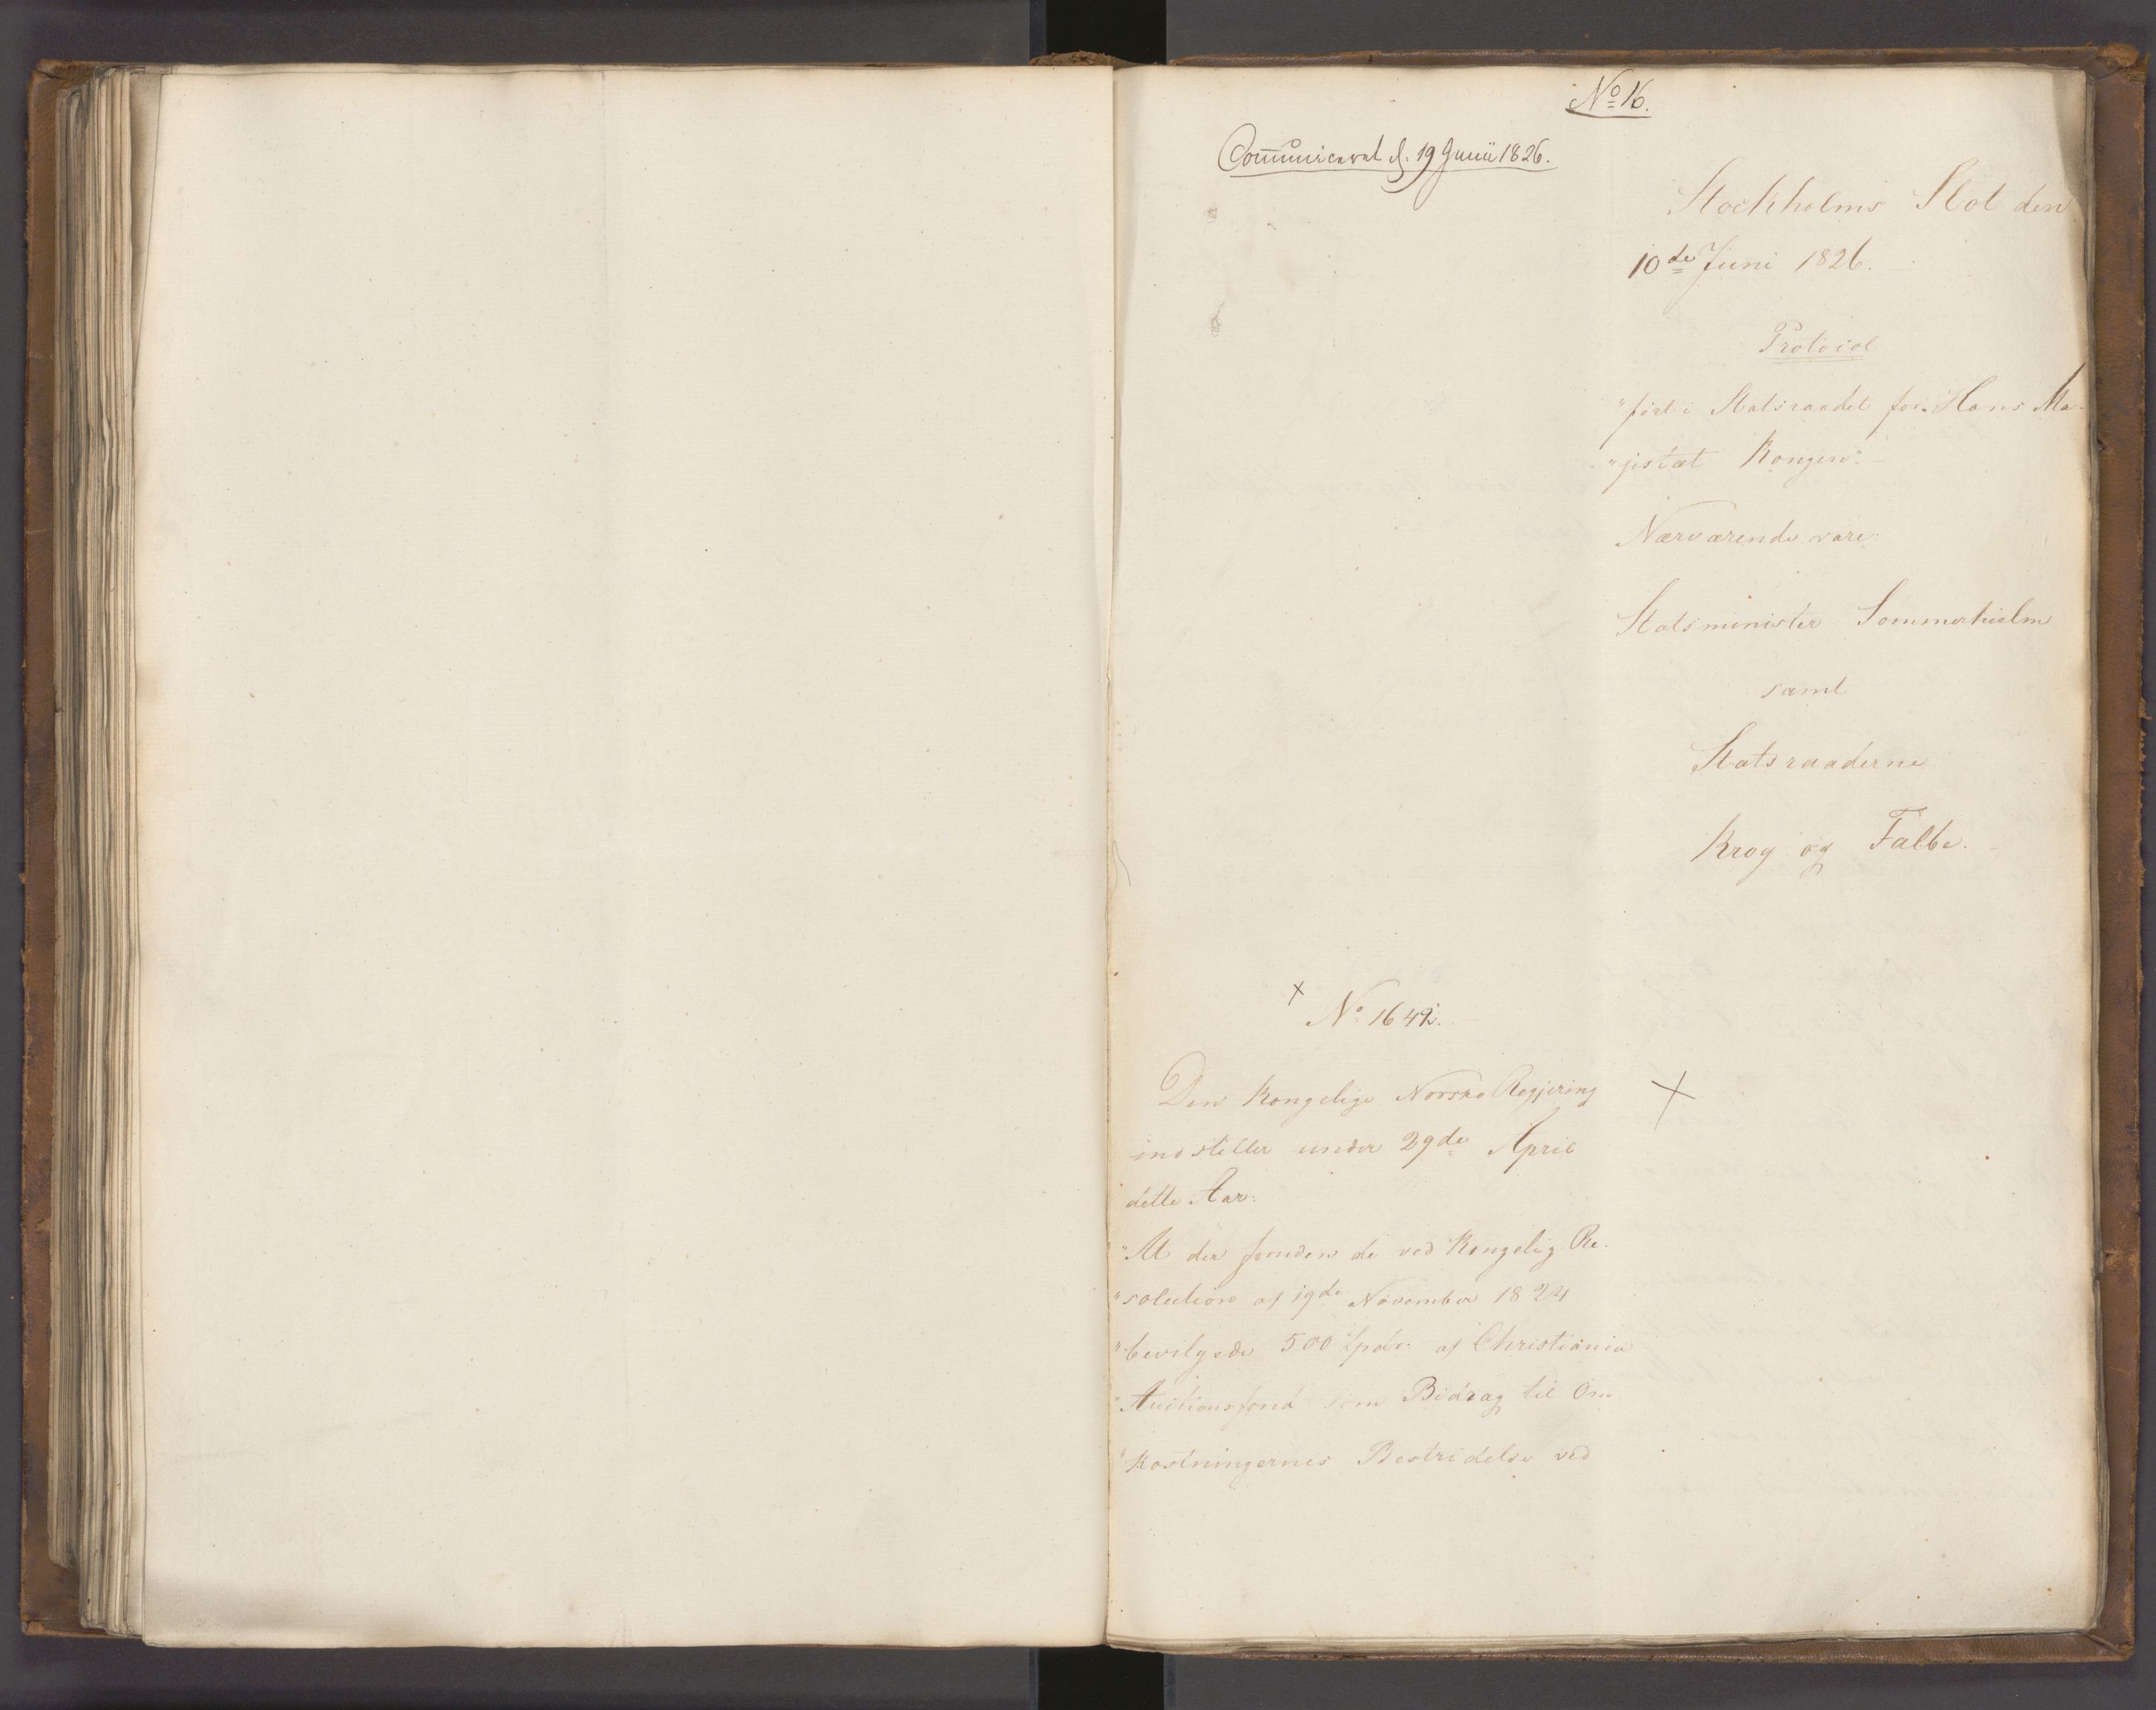 No 16.
Communicerat d. 19 Junii 1826.
Stockholms Slot den
10de Juni 1826.
Protocol
"ført i Statsraadet for Hans Ma-
"jestæt Kongen".
Nærværende vare:
Statsminister Sommerhielm
samt
Statsraaderne
Krog og Falbe.
No 1642.
Den Kongelige Norske Regjering
indstiller under 29de April
dette Aar:
"At der foruden de ved Kongelig Re-
"solution af 19de November 1824
"bevilgede 500 Spdr. af Christiania
"Auctionsfond som Bidrag til Om-
"kostningernes Bestridelse ved